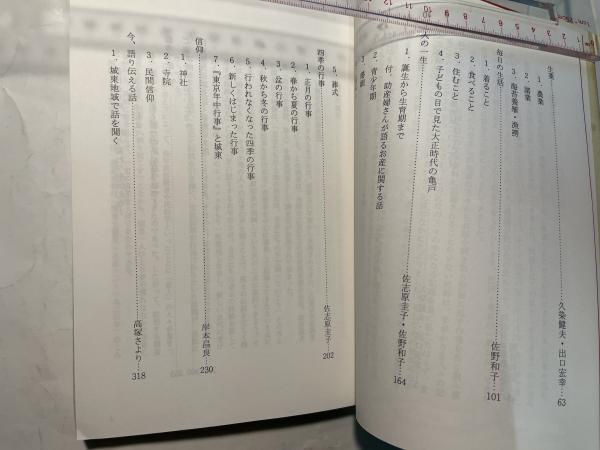 生業……久染健夫・出口宏幸…63
1.農業
2.諸業
3.海苔養殖・漁撈
毎日の生活……佐野和子…101
1.着ること
2.食べること
3.住むこと
4.子どもの目で見た大正時代の亀戸
人の一生……佐志原圭子・佐野和子…164
1.誕生から生育期まで
付.助産婦さんが語るお産に関する話
2.青少年期
5.葬式
四季の行事……佐志原圭子…202
1.正月の行事
2.春から夏の行事
3.盆の行事
4.秋から冬の行事
5.行われなくなった四季の行事
6.新しくはじまった行事
7.『東京年中行事』と城東
信仰……岸本昌良…230
1.神社
2.寺院
3.民間信仰
今、語り伝える話……高塚さより…318
1.城東地域で話を聞く